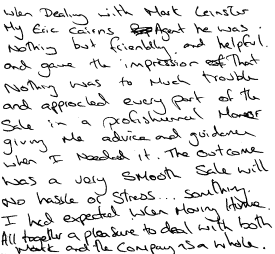 When Dealing with Mark Leinster
My Eric Cairns Agent he was
Nothing but friendly and helpful.
and gave the impression That
Nothing was to Much trouble
and approched every part of the
Sale in a profishunal Manor
giving Me advice and guidence
when I Needed it. The outcome
was a very Smooth Sale with
no hassle or Stress... something
I had expected when Moving Home.
All together a pleasure to deal with both
Mark and the Company as a whole.